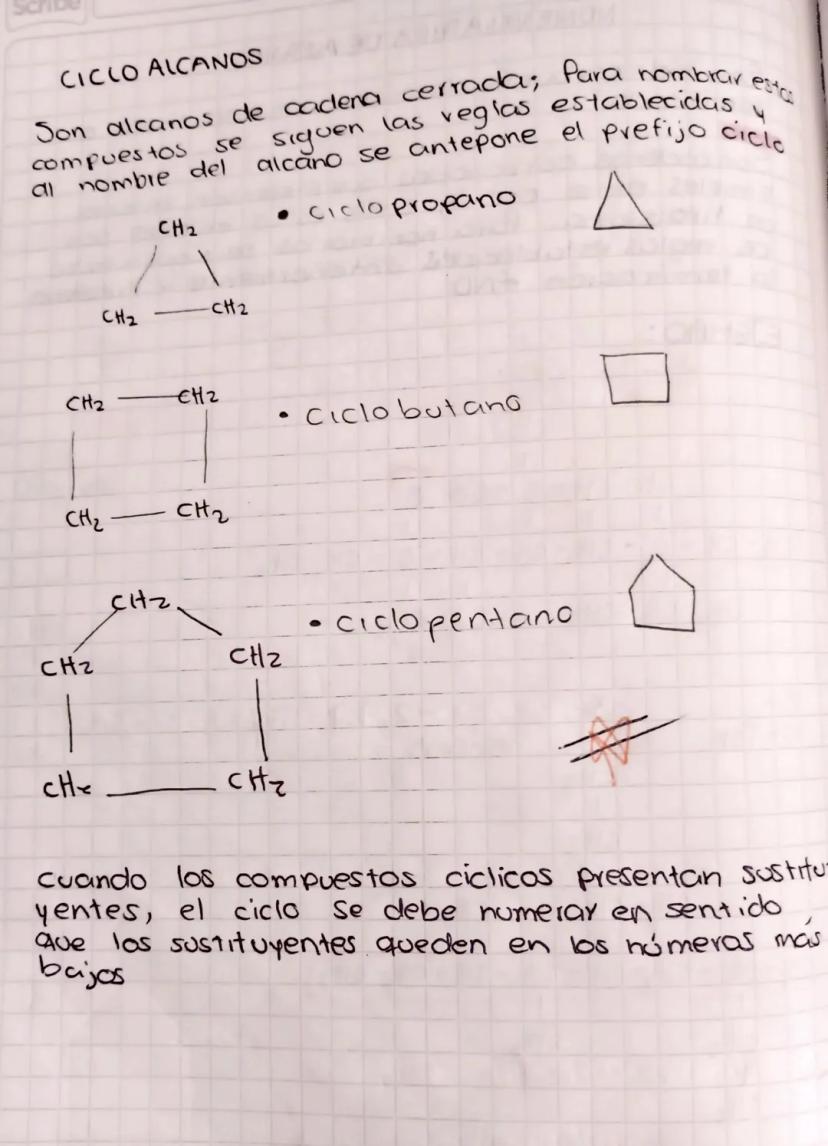 Scribe
CICLO ALCANOS
Son alcanos de cadena cerrada; Para nombrar estos
compuestos se siguen las reglas establecidas y
al nombre del alcano se antepone el prefijo ciclo
CH2
• Ciclo propano
CH2 — CH2
CH2 — CH2
• Ciclo butano
CH2 — CH2
CH2
• Ciclo pentano
CH2 CH2
CH2 — CH2
cuando los compuestos ciclicos presentan sustitu-
yentes, el ciclo se debe numerar en sentido
que los sustituyentes queden en los números más
bajos